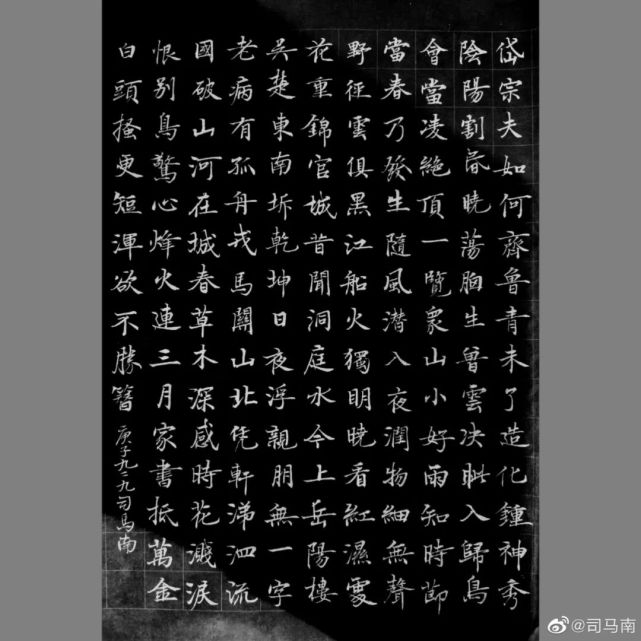 岱宗夫如何齊魯青未了造化鍾神秀
陰陽割昏曉蕩胸生曾雲决眦入歸鳥
會當凌絶頂一覽衆山小好雨知時節
當春乃發生隨風潜入夜潤物細無聲
野徑雲俱黑江船火獨明曉看紅濕處
花重錦官城昔聞洞庭水今上岳陽樓
吳楚東南坼乾坤日夜浮親朋無一字
老病有孤舟戎馬關山北凭軒涕泗流
國破山河在城春草木深感時花濺淚
恨别鳥驚心烽火連三月家書抵萬金
白頭搔更短渾欲不勝簪 庚子九二九司馬南
@司马南